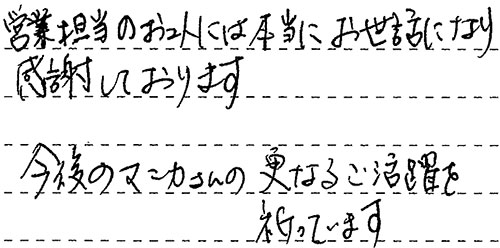 営業担当のお二人には本当にお世話になり
感謝しております
今後のマニカさんの更なるご活躍を
祈っています